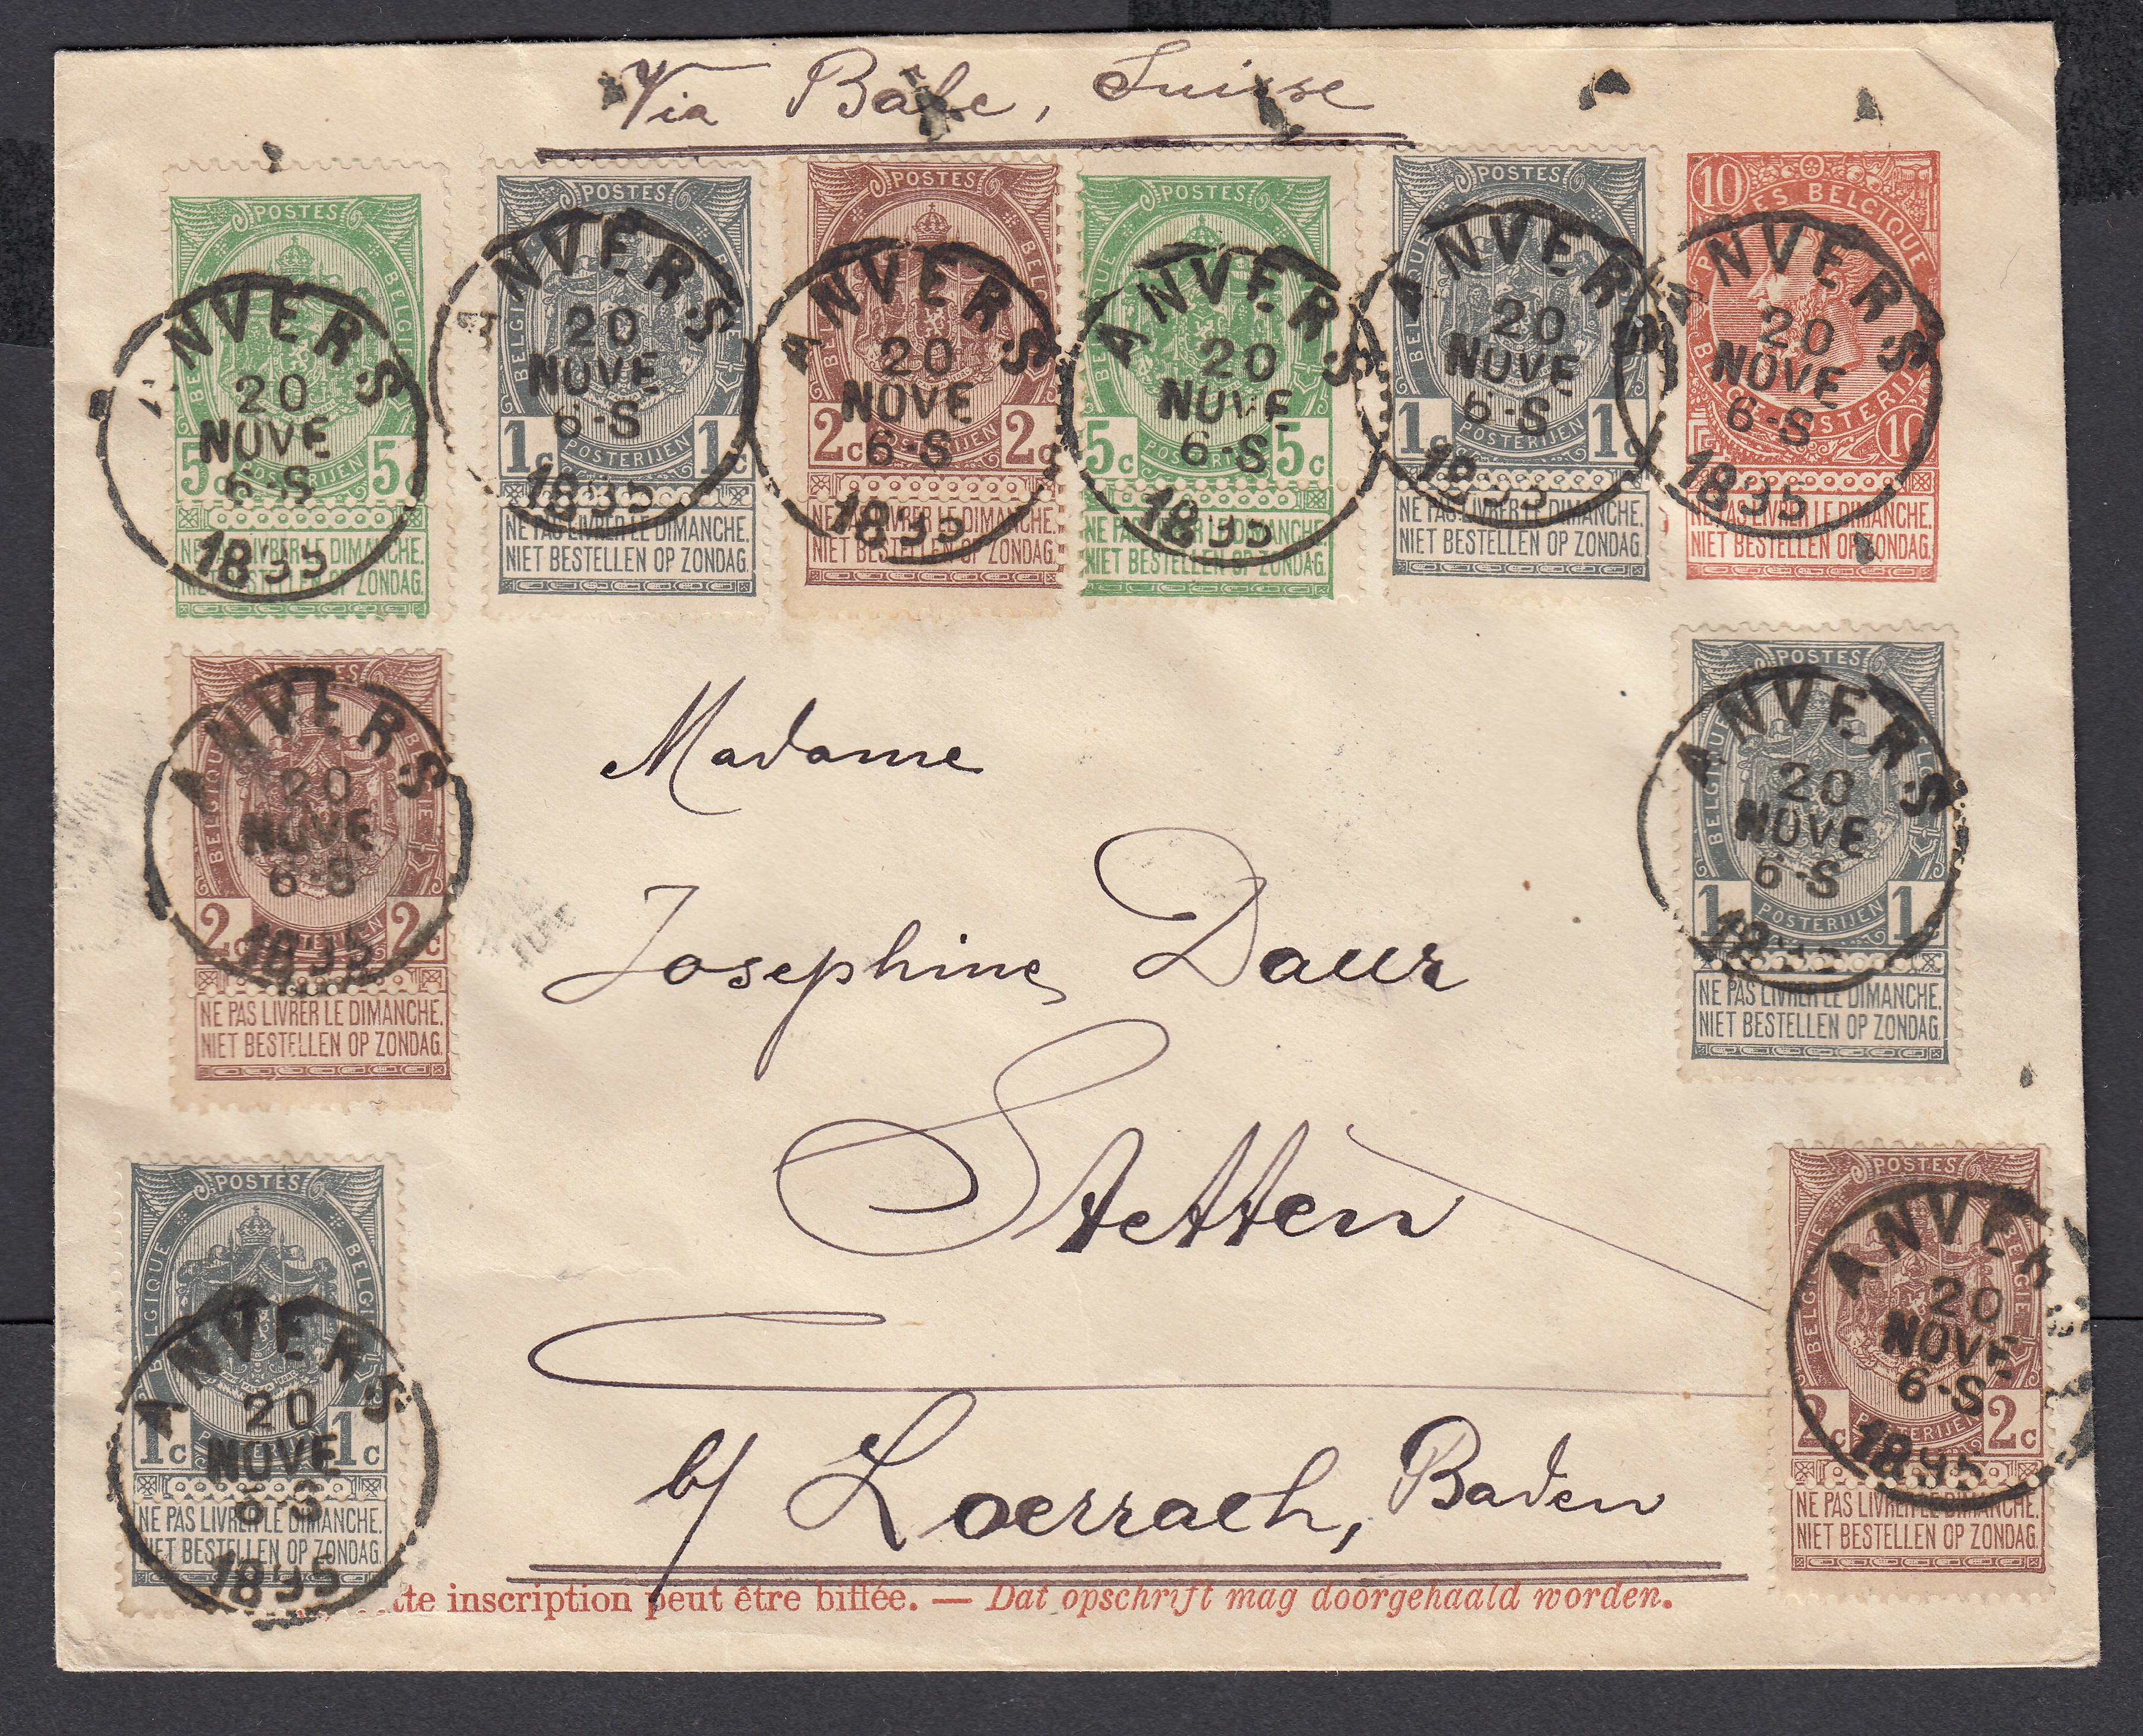 Via Bâle, Suisse
POSTES BELGIQUE BELGIE POSTERIJEN 5c 5c
NE PAS LIVRER LE DIMANCHE.
NIET BESTELLEN OP ZONDAG.
ANVERS 20 NOVE 6-S 1895
POSTES BELGIQUE BELGIE POSTERIJEN 1c 1c
NE PAS LIVRER LE DIMANCHE.
NIET BESTELLEN OP ZONDAG.
ANVERS 20 NOVE 6-S 1895
POSTES BELGIQUE BELGIE POSTERIJEN 2c 2c
NE PAS LIVRER LE DIMANCHE.
NIET BESTELLEN OP ZONDAG.
ANVERS 20 NOVE 6-S 1895
POSTES BELGIQUE BELGIE POSTERIJEN 5c 5c
NE PAS LIVRER LE DIMANCHE.
NIET BESTELLEN OP ZONDAG.
ANVERS 20 NOVE 6-S 1895
POSTES BELGIQUE BELGIE POSTERIJEN 1c 1c
NE PAS LIVRER LE DIMANCHE.
NIET BESTELLEN OP ZONDAG.
ANVERS 20 NOVE 6-S 1895
10 POSTES BELGIQUE BELGISCHE POSTERIJEN 10
NE PAS LIVRER LE DIMANCHE.
NIET BESTELLEN OP ZONDAG.
ANVERS 20 NOVE 6-S 1895
POSTES BELGIQUE BELGIE POSTERIJEN 2c 2c
NE PAS LIVRER LE DIMANCHE.
NIET BESTELLEN OP ZONDAG.
ANVERS 20 NOVE 6-S 1895
POSTES BELGIQUE BELGIE POSTERIJEN 1c 1c
NE PAS LIVRER LE DIMANCHE.
NIET BESTELLEN OP ZONDAG.
ANVERS 20 NOVE 6-S 1895
Madame
Josephine Daur
Stetten
b/ Loerrach, Baden
POSTES BELGIQUE BELGIE POSTERIJEN 1c 1c
NE PAS LIVRER LE DIMANCHE.
NIET BESTELLEN OP ZONDAG.
ANVERS 20 NOVE 6-S 1895
POSTES BELGIQUE BELGIE POSTERIJEN 2c 2c
NE PAS LIVRER LE DIMANCHE.
NIET BESTELLEN OP ZONDAG.
ANVERS 20 NOVE 6-S 1895
tte inscription peut être biffée. — Dat opschrift mag doorgehaald worden.